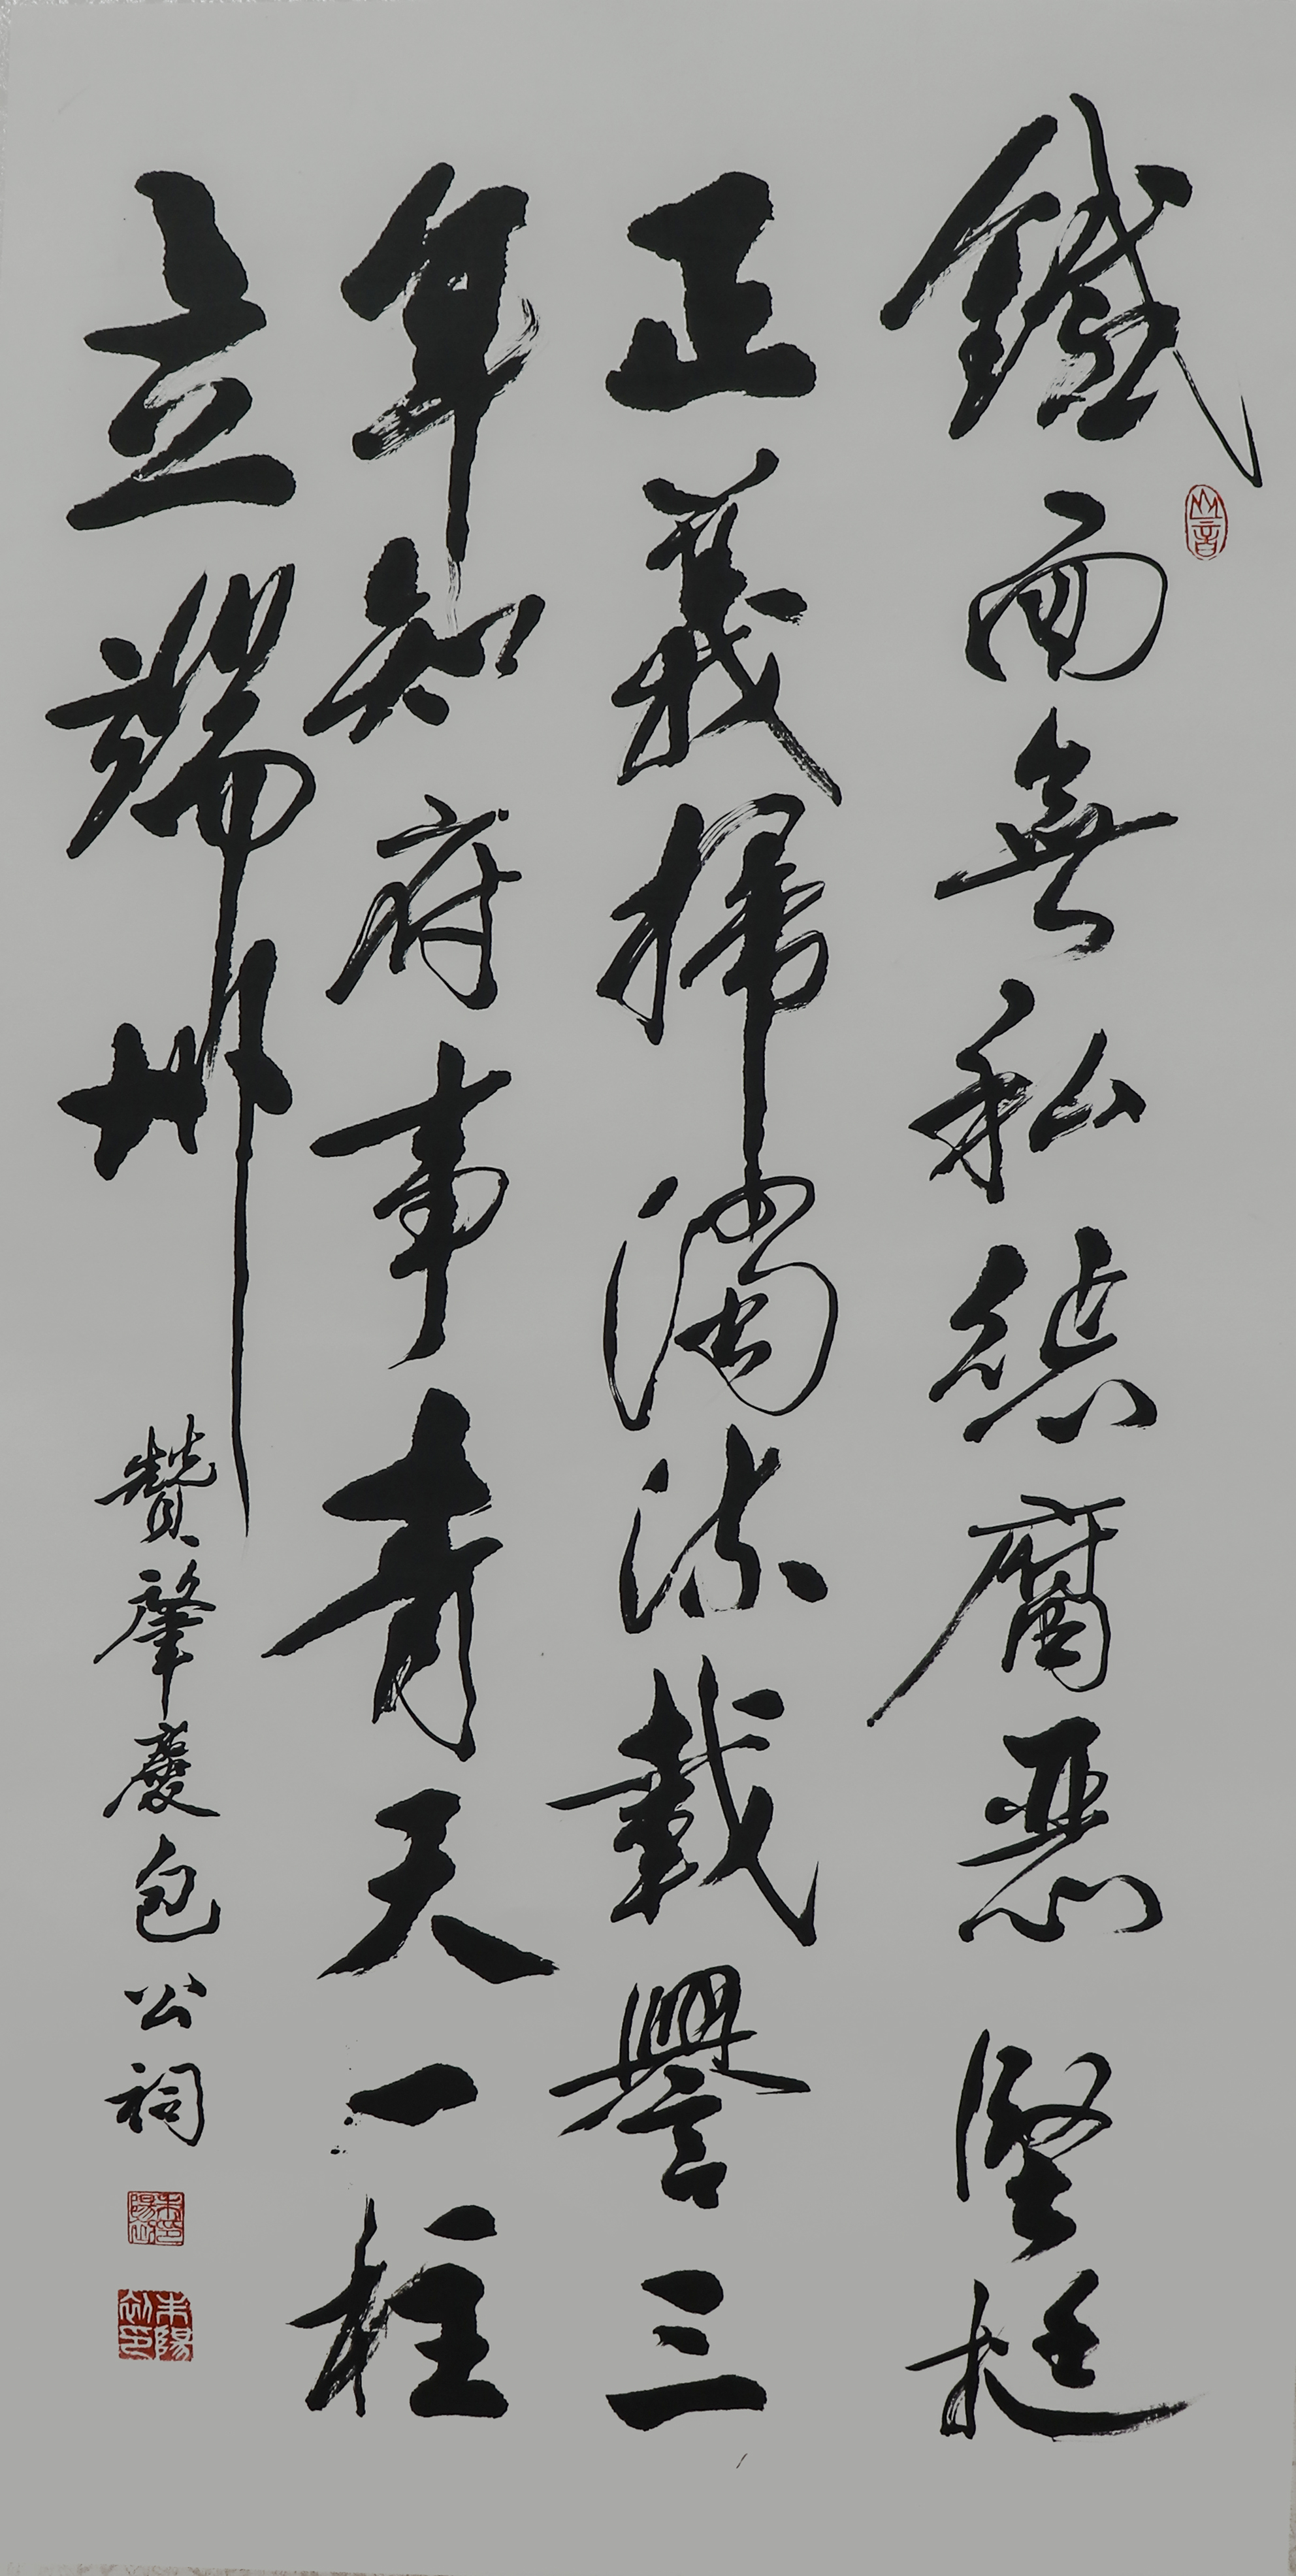 鐵面無私懲腐惡堅挺
正義掃濁流載譽三
年知府事青天一柱
立端州
贊肇慶包公祠